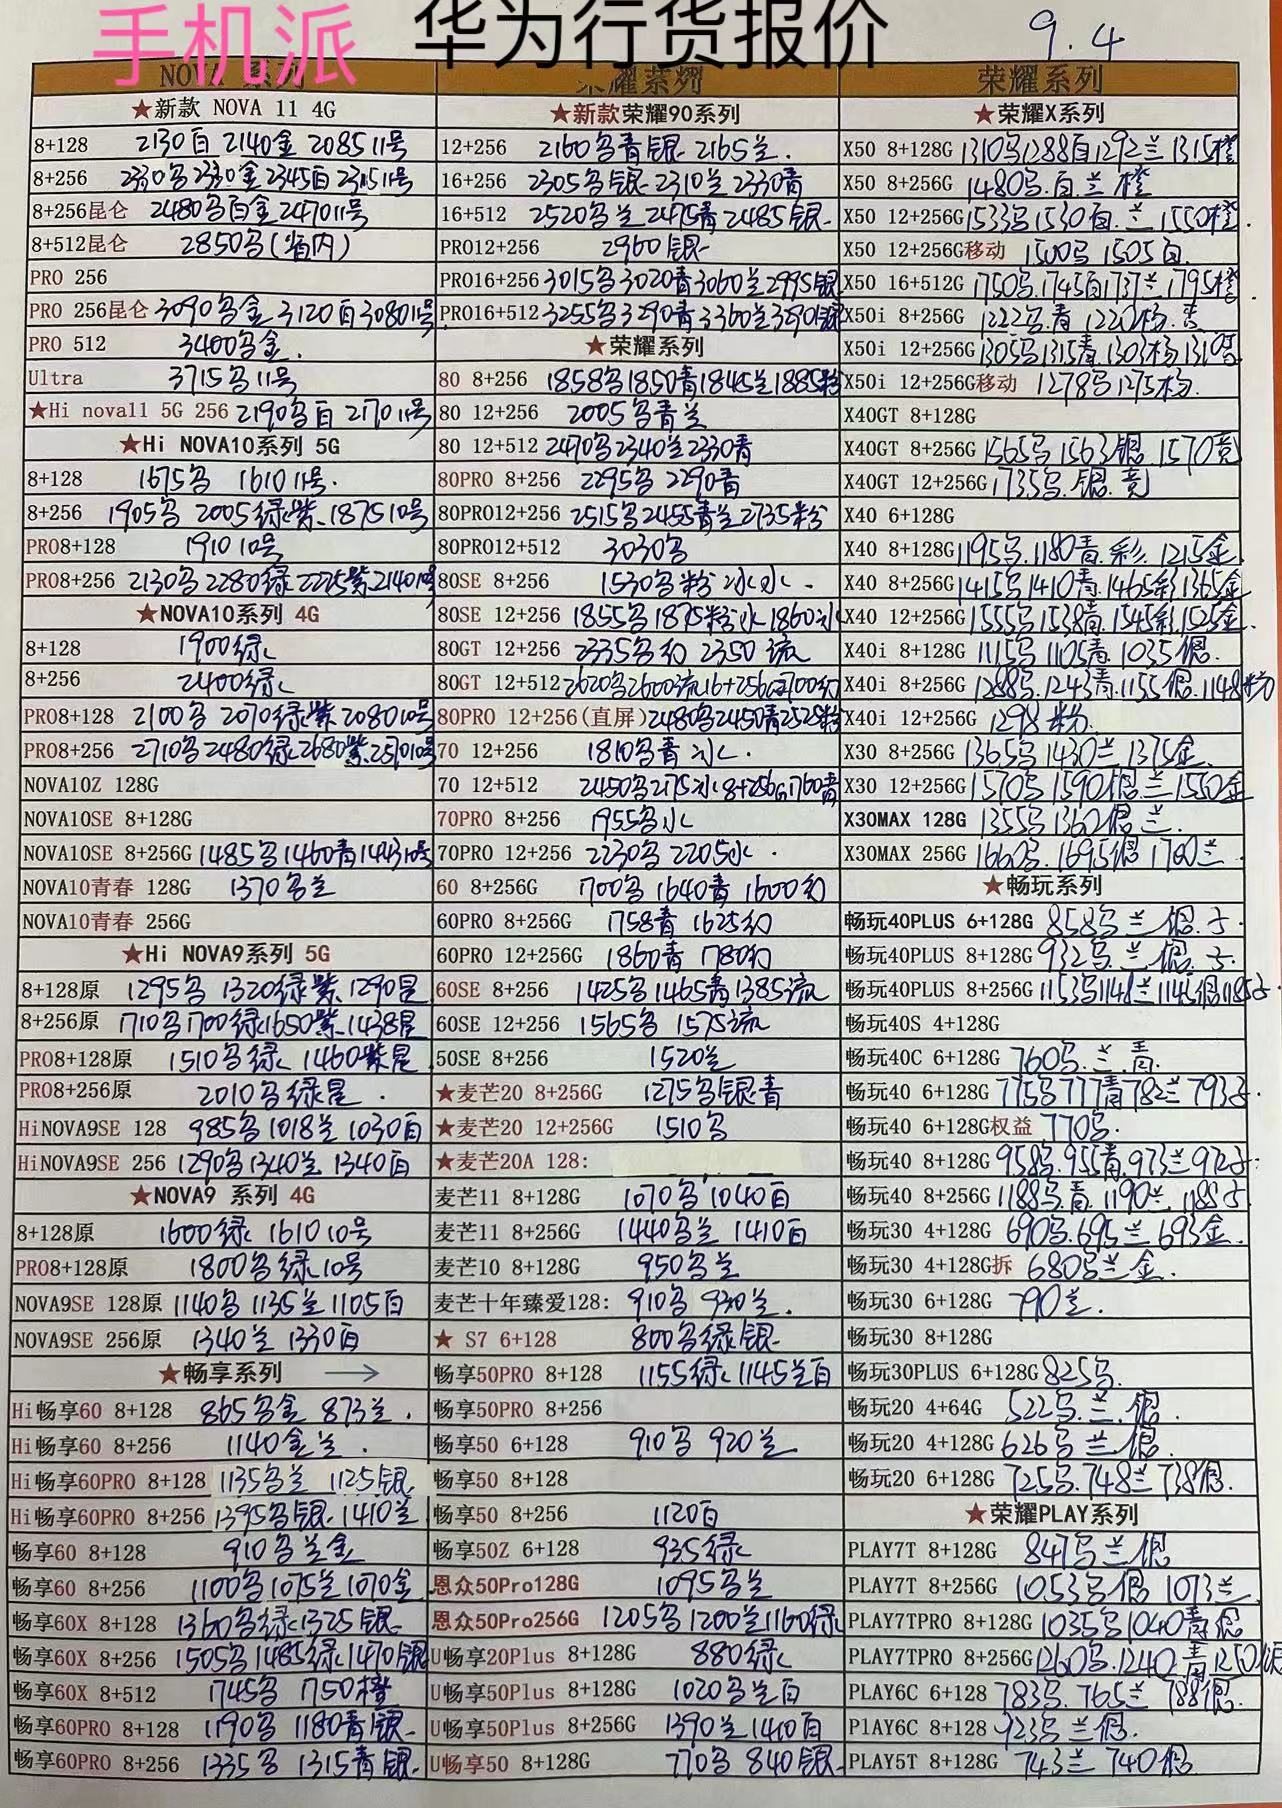 手机派 华为行货报价 9.4
NOVA 系列
★新款 NOVA 11 4G
8+128 2130白 2140金 2085 11号
8+256 2330鸟2330金2345白2315 11号
8+256昆仑 2480鸟白金2470 11号
8+512昆仑 2850鸟(省内)
PRO 256
PRO 256昆仑 3090鸟金 3120白3080 11号
PRO 512 3400鸟金.
Ultra 3715鸟 11号
★Hi nova11 5G 256 2190鸟白 2170 11号
★Hi NOVA10系列 5G
8+128 1675鸟 1610 11号.
8+256 1905鸟 2005绿紫 1875 10号
PRO8+128 1910 10号
PRO8+256 2130鸟2280绿2225紫2140 10号
★NOVA10系列 4G
8+128 1900绿
8+256 2400绿
PRO8+128 2100鸟 2070绿紫2080 10号
PRO8+256 2710鸟2480绿2680紫2570 10号
NOVA10Z 128G
NOVA10SE 8+128G
NOVA10SE 8+256G 1485鸟1460青1443 10号
NOVA10青春 128G 1370鸟兰
NOVA10青春 256G
★Hi NOVA9系列 5G
8+128原 1295鸟 1320绿紫 1290星
8+256原 1710鸟1700绿1650紫1438星
PRO8+128原 1510鸟绿 1460紫星
PRO8+256原 2010鸟绿星.
HiNOVA9SE 128 985鸟1018兰 1030白
HiNOVA9SE 256 1290鸟1340兰 1340白
★NOVA9 系列 4G
8+128原 1600绿 1610 10号
PRO8+128原 1800鸟绿10号
NOVA9SE 128原 1140鸟 1135兰 1105白
NOVA9SE 256原 1340兰 1330白
★畅享系列 →
Hi畅享60 8+128 865鸟金 873兰.
Hi畅享60 8+256 1140金兰.
Hi畅享60PRO 8+128 1135鸟兰 1125银
Hi畅享60PRO 8+256 1395鸟银 1410兰
畅享60 8+128 910鸟兰金
畅享60 8+256 1100鸟1075兰1070金
畅享60X 8+128 1360鸟绿1325银
畅享60X 8+256 1505鸟1485绿1470银
畅享60X 8+512 1745鸟 1750橙
畅享60PRO 8+128 1190鸟 1180青银
畅享60PRO 8+256 1335鸟 1315青银
荣耀系列
★新款荣耀90系列
12+256 2160鸟青银 2165兰.
16+256 2305鸟银 2310兰2330青
16+512 2520鸟兰2475青2485银
PRO12+256 2960银
PRO16+256 3015鸟3020青3060兰2995银
PRO16+512 3255鸟3290青3360兰3290银
★荣耀系列
80 8+256 1858鸟1850青1845兰1885粉
80 12+256 2005鸟青兰
80 12+512 2470鸟2340兰2330青
80PRO 8+256 2295鸟 2290青
80PRO12+256 2515鸟2455青兰2735粉
80PRO12+512 3030鸟
80SE 8+256 1530鸟粉冰水.
80SE 12+256 1855鸟1875粉冰1860水
80GT 12+256 2335鸟幻 2350流
80GT 12+512 2620鸟2600流16+256G2700幻
80PRO 12+256(直屏)2480鸟2450青2525粉
70 12+256 1810鸟青冰.
70 12+512 2450鸟2175冰8+256G1760青
70PRO 8+256 1955鸟水
70PRO 12+256 2230鸟 2205水.
60 8+256G 1700鸟1640青 1600幻
60PRO 8+256G 1758青 1625幻
60PRO 12+256G 1860青 1780幻
60SE 8+256 1425鸟1465青1385流
60SE 12+256 1565鸟 1575流
50SE 8+256 1520兰
★麦芒20 8+256G 1275鸟银青
★麦芒20 12+256G 1510鸟
★麦芒20A 128:
麦芒11 8+128G 1070鸟1040白
麦芒11 8+256G 1440鸟兰 1410白
麦芒10 8+128G 950鸟兰
麦芒十年臻爱128: 910鸟 930兰.
★ S7 6+128 800鸟绿银
畅享50PRO 8+128 1155绿 1145兰白
畅享50PRO 8+256
畅享50 6+128 910鸟 920兰
畅享50 8+128
畅享50 8+256 1120白
畅享50Z 6+128 935绿
恩众50Pro128G 1095鸟兰
恩众50Pro256G 1205鸟1200兰1160绿
U畅享20Plus 8+128G 880绿
U畅享50Plus 8+128G 1020鸟兰白
U畅享50Plus 8+256G 1390兰1410白
U畅享50 8+128G 770鸟 840银
荣耀系列
★荣耀X系列
X50 8+128G 1310鸟1288白1292兰 1315橙
X50 8+256G 1480鸟.白.兰 橙
X50 12+256G 1533鸟1530白.兰1550橙.
X50 12+256G移动 1500鸟 1505白
X50 16+512G 1750鸟1745白1737兰1795橙
X50i 8+256G 1222鸟.青 1220杨.
X50i 12+256G 1305鸟1315青.1303杨1310
X50i 12+256G移动 1278鸟1275杨.
X40GT 8+128G
X40GT 8+256G 1565鸟 1563银 1570竞
X40GT 12+256G 1735鸟.银.竞
X40 6+128G
X40 8+128G 1195鸟.1180青.彩.1215金
X40 8+256G 1415鸟1410青.1465彩1365金
X40 12+256G 1555鸟1538青.1545彩.1525金.
X40i 8+128G 1115鸟1105青.1035银.
X40i 8+256G 1288鸟.1243青.1155银.1148粉
X40i 12+256G 1298粉.
X30 8+256G 1365鸟 1430兰 1375金.
X30 12+256G 1570鸟 1590银兰1550金
X30MAX 128G 1355鸟1360银兰.
X30MAX 256G 1660鸟.1695银 1700兰
★畅玩系列
畅玩40PLUS 6+128G 858鸟 兰.银.子.
畅玩40PLUS 8+128G 932鸟.兰 银.子.
畅玩40PLUS 8+256G 1153鸟1148兰1145银1185子.
畅玩40S 4+128G
畅玩40C 6+128G 760鸟.兰.青.
畅玩40 6+128G 775鸟777青782兰 793子.
畅玩40 6+128G权益 770鸟.
畅玩40 8+128G 958鸟.955青.973兰972子.
畅玩40 8+256G 1188鸟.青.1190兰.1185子
畅玩30 4+128G 690鸟.695兰 693金.
畅玩30 4+128G拆 680鸟兰金.
畅玩30 6+128G 790兰.
畅玩30 8+128G
畅玩30PLUS 6+128G 825鸟.
畅玩20 4+64G 522鸟.兰.银.
畅玩20 4+128G 626鸟 兰 银.
畅玩20 6+128G 725鸟.748兰 738银.
★荣耀PLAY系列
PLAY7T 8+128G 847鸟兰银
PLAY7T 8+256G 1053鸟银 1073兰
PLAY7TPRO 8+128G 1035鸟1040青银
PLAY7TPRO 8+256G 1260鸟.1240青1250银
PLAY6C 6+128 783鸟.765兰 788银.
PlAY6C 8+128 923鸟 兰银.
PLAY5T 8+128G 743兰 740银